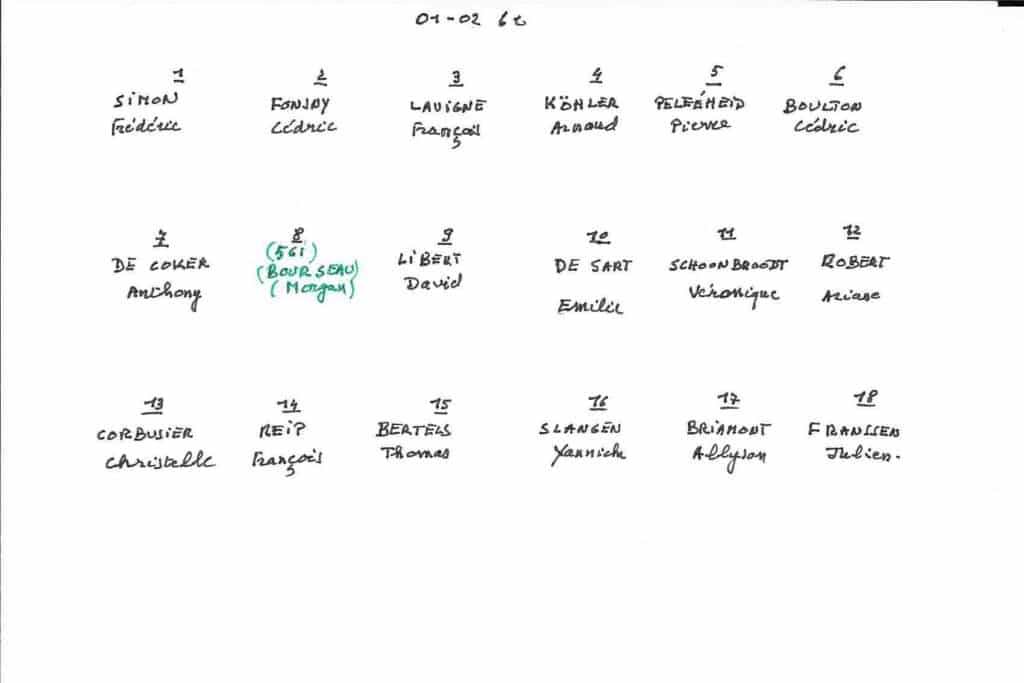 01-02 6t
1 2 3 4 5 6
SIMON FONJOY LAVIGNE KÖHLER BOULTON
Frédéric Cédric François Arnaud Pierre Cédric
7 8 9 10 11 12
(5Gi)
DE COKER (BOURSEAU) LIBERT DE SART SCHOONBROODT ROBERT
Anthony (Morgan) David Emilie Véronique Ariane
13 14 15 16 17 18
CORBUSIER REIP BERTELS SLANGEN BRIAMONT FRANSSEN
Christelle François Thomas Yannick Allyson Julien.